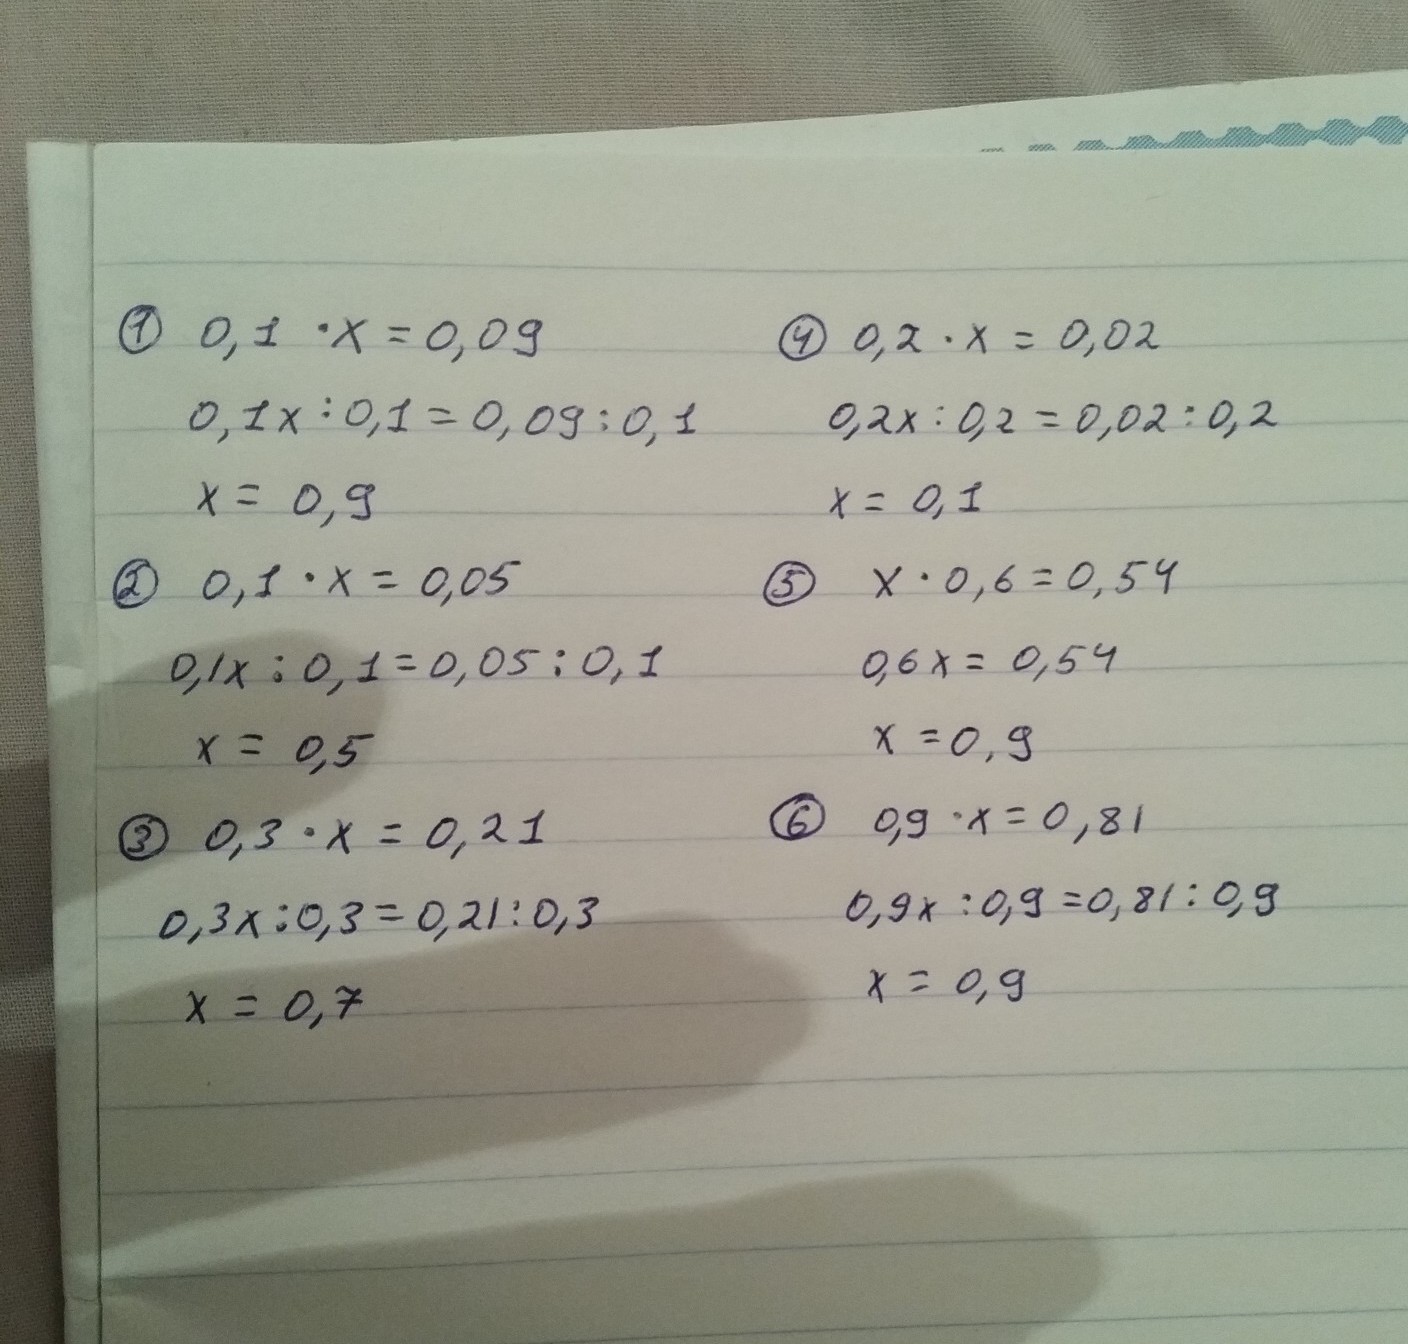 ① 0,1 · x = 0,09
0,1x : 0,1 = 0,09 : 0,1
x = 0,9
② 0,1 · x = 0,05
0,1x : 0,1 = 0,05 : 0,1
x = 0,5
③ 0,3 · x = 0,21
0,3x : 0,3 = 0,21 : 0,3
x = 0,7
④ 0,2 · x = 0,02
0,2x : 0,2 = 0,02 : 0,2
x = 0,1
⑤ x · 0,6 = 0,54
0,6x = 0,54
x = 0,9
⑥ 0,9 · x = 0,81
0,9x : 0,9 = 0,81 : 0,9
x = 0,9